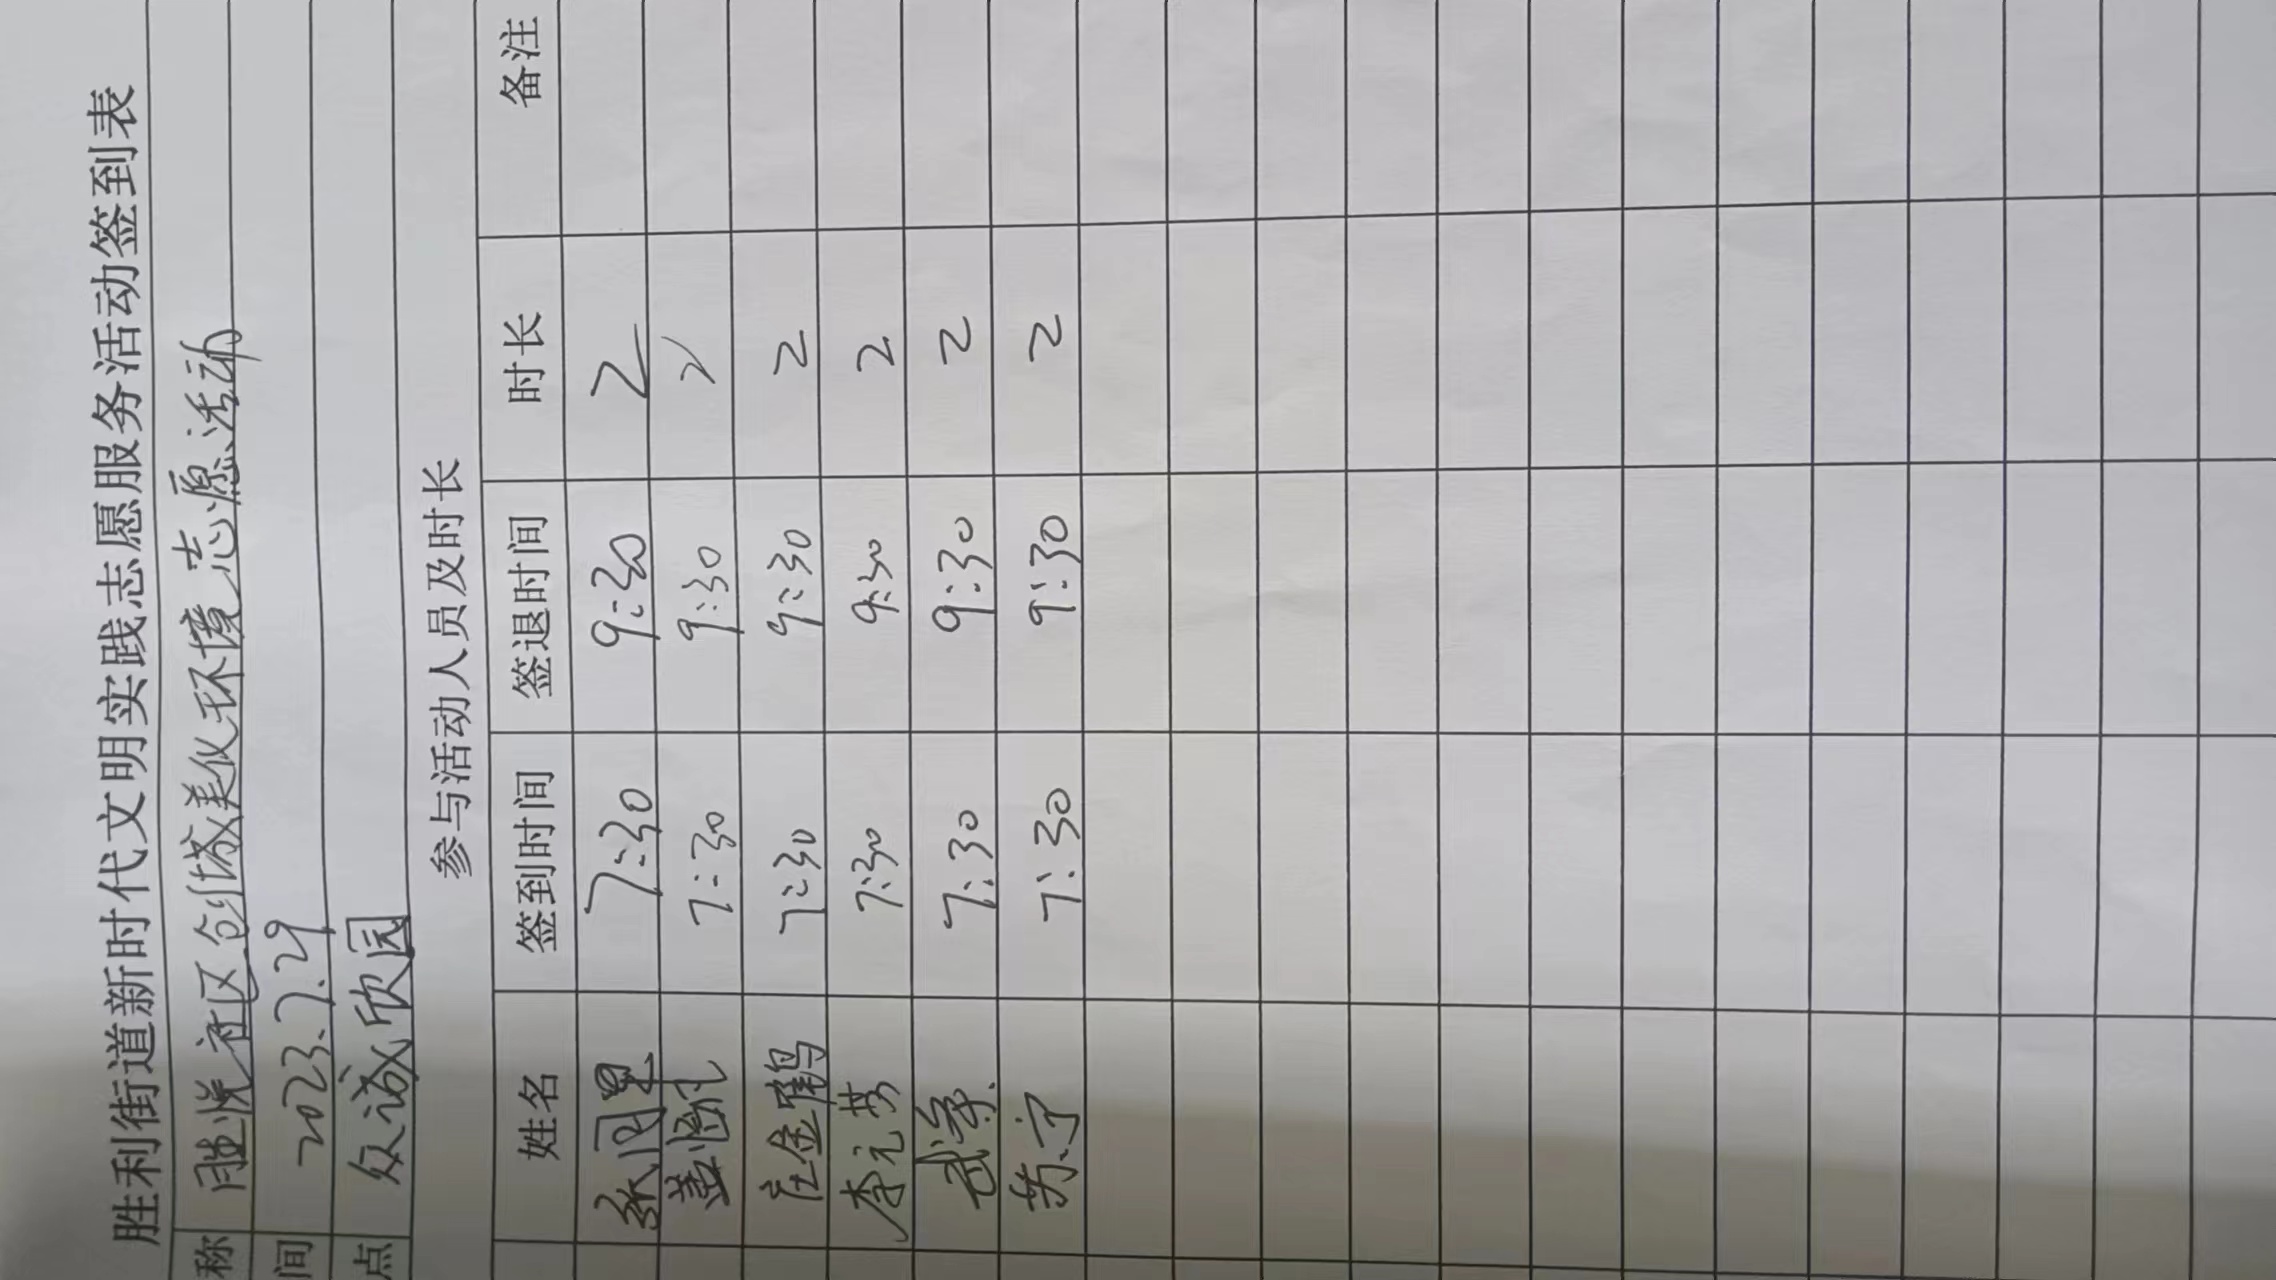 胜利街道新时代文明实践志愿服务活动签到表
称 胜悦社区创城美化环境志愿活动
间 2023.7.29
点 众诚欣园
参与活动人员及时长
姓名 签到时间 签退时间 时长 备注
7:30 9:30 2
7:30 9:30 2
庄金鹤 7:30 9:30 2
李元芬 7:30 9:30 2
7:30 9:30 2
苏宁 7:30 9:30 2